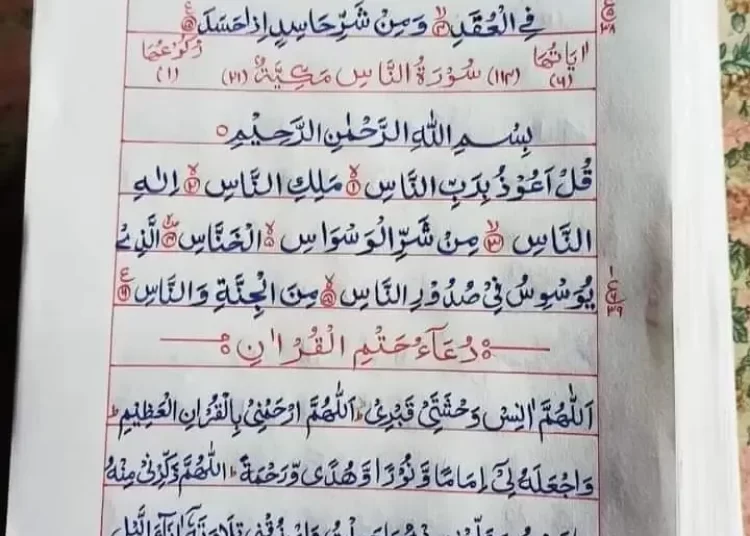 فِي الْعُقَدِ ۝۴ وَمِنْ شَرِّ حَاسِدٍ اِذَا حَسَدَ ۝۵
اٰيَاتُهَا (۶) (۱۱۴) سُوْرَةُ النَّاسِ مَكِّيَّةٌ (۲۱) رُكُوْعُهَا (۱)
بِسْمِ اللّٰهِ الرَّحْمٰنِ الرَّحِيْمِ ۝
قُلْ اَعُوْذُ بِرَبِّ النَّاسِ ۝۱ مَلِكِ النَّاسِ ۝۲ اِلٰهِ
النَّاسِ ۝۳ مِنْ شَرِّ الْوَسْوَاسِ الْخَنَّاسِ ۝۴ الَّذِيْ
يُوَسْوِسُ فِيْ صُدُوْرِ النَّاسِ ۝۵ مِنَ الْجِنَّةِ وَالنَّاسِ ۝۶
دُعَآءُ خَتْمِ الْقُرْاٰنِ
اَللّٰهُمَّ اٰنِسْ وَحْشَتِيْ فِيْ قَبْرِيْ اَللّٰهُمَّ ارْحَمْنِيْ بِالْقُرْاٰنِ الْعَظِيْمِ
وَاجْعَلْهُ لِيْ اِمَامًا وَّنُوْرًا وَّهُدًى وَّرَحْمَةً اَللّٰهُمَّ ذَكِّرْنِيْ مِنْهُ